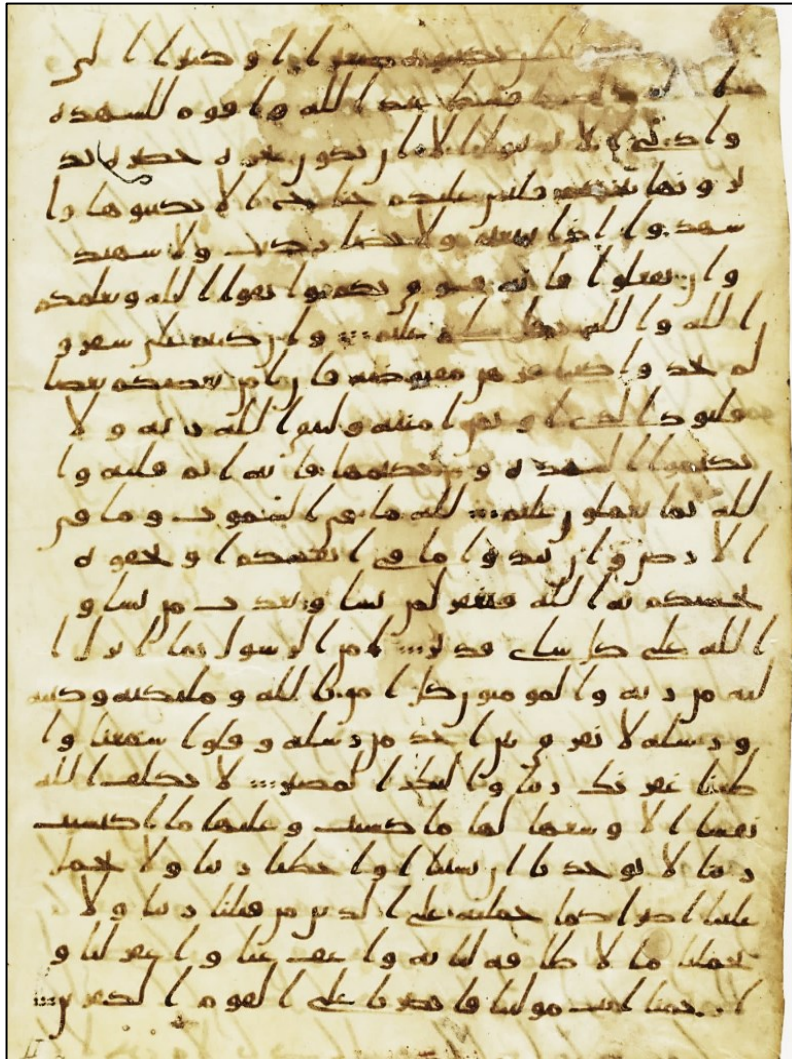 تكتبوه صغيرا او كبيرا الى
اقسط عند الله واقوم للشهدة
وادنى الا ترتبوا الا ان تكون تجرة حضرة تد
يرونها بينكم فليس عليكم جناح الا تكتبوها وا
شهدوا اذا تبيعتم ولا يضار كتب ولا شهيد
وان تفعلوا فانه فسوق بكم واتقوا الله ويعلمكم
الله والله بكل شي عليم وان كنتم على سفر و
لم تجدوا كتبا فرهن مقبوضة فان امن بعضكم بعضا
فليود الذي اوتمن امنته وليتق الله ربه ولا
تكتموا الشهدة ومن يكتمها فانه اثم قلبه وا
لله بما تعملون عليم لله ما في السموت وما في
الارض وان تبدوا ما في انفسكم او تخفوه
يحسبكم به الله فيغفر لمن يشا ويعذب من يشا و
الله على كل شاي قدير امن الرسول بما انزل ا
ليه من ربه والمومنون كل امن بالله وملئكته وكتبه
ورسله لا نفرق بين احد من رسله وقلوا سمعنا وا
طعنا غفرنك ربنا واليك المصير لا يكلف الله
نفسا الا وسعها لها ما كسبت وعليها ما اكتسبت
ربنا لا توخذنا ان نسينا او اخطينا ربنا ولا تحمل
علينا اصرا كما حملته على الذين من قبلنا ربنا ولا
تحملنا ما لا طاقة لنا به واعف عنا واغفر لنا و
ارحمنا انت مولينا فانصرنا على القوم الكفرين